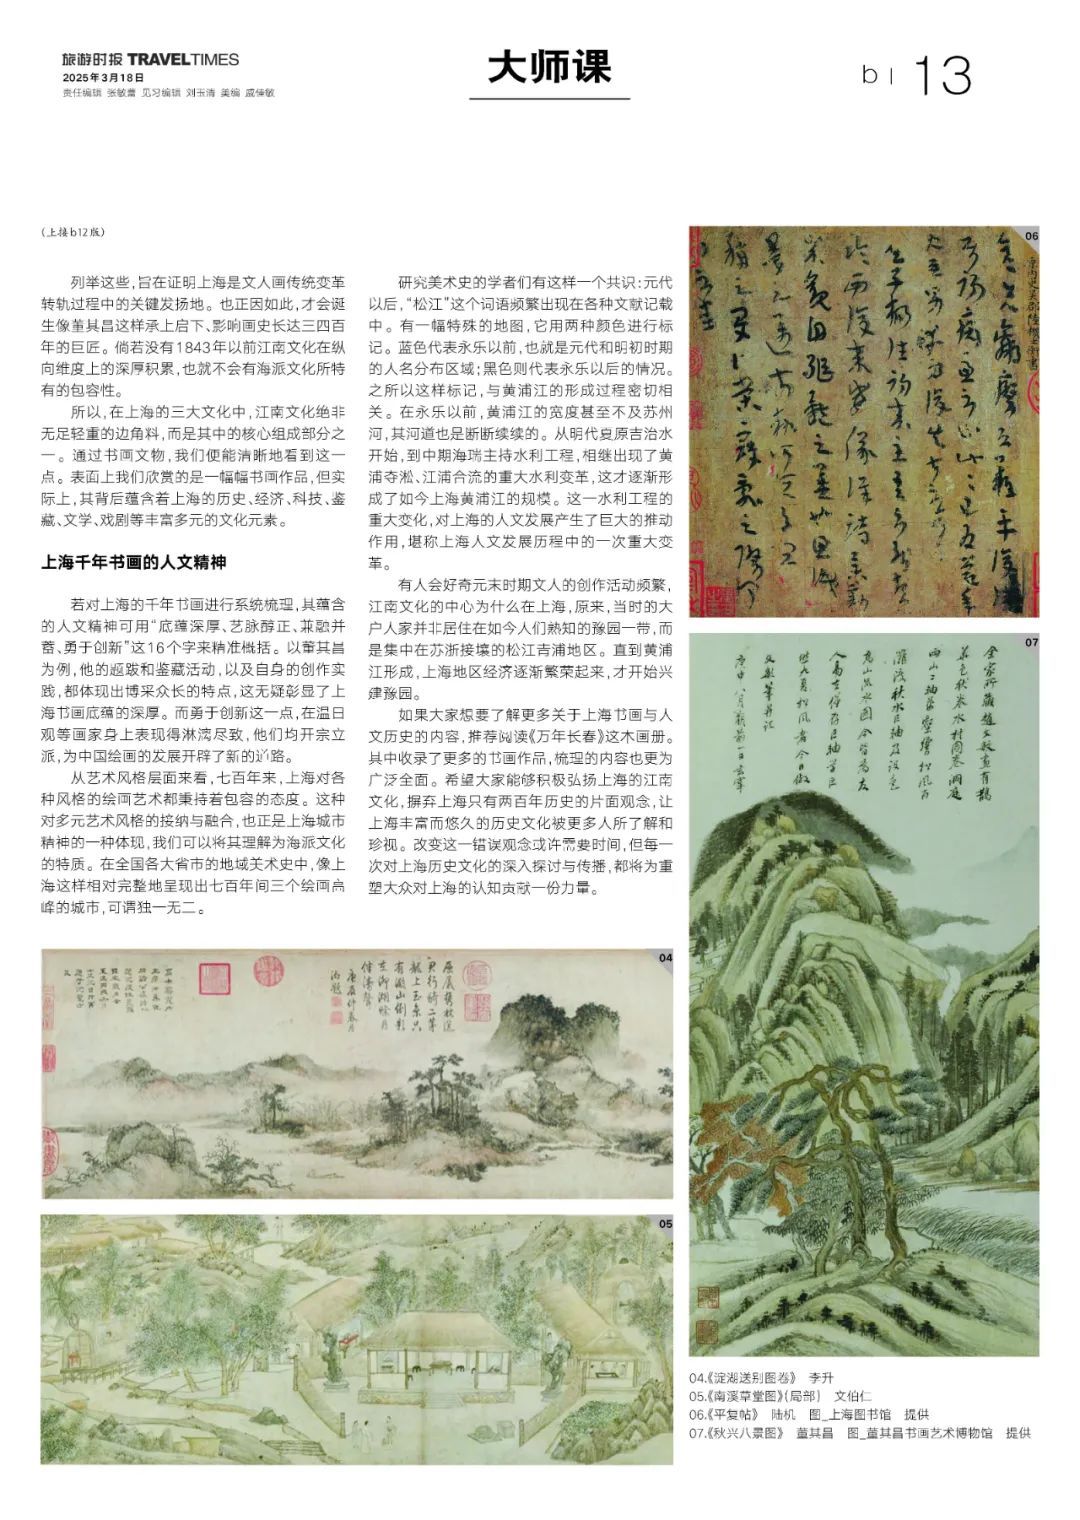 旅游时报 TRAVELTIMES
2025年3月18日
责任编辑 张敏蕾 见习编辑 刘玉清 美编 戚倢敏
大师课
b | 13
(上接b12版)
列举这些,旨在证明上海是文人画传统变革
转轨过程中的关键发扬地。也正因如此,才会诞
生像董其昌这样承上启下、影响画史长达三四百
年的巨匠。倘若没有1843年以前江南文化在纵
向维度上的深厚积累,也就不会有海派文化所特
有的包容性。
所以,在上海的三大文化中,江南文化绝非
无足轻重的边角料,而是其中的核心组成部分之
一。通过书画文物,我们便能清晰地看到这一
点。表面上我们欣赏的是一幅幅书画作品,但实
际上,其背后蕴含着上海的历史、经济、科技、鉴
藏、文学、戏剧等丰富多元的文化元素。
上海千年书画的人文精神
若对上海的千年书画进行系统梳理,其蕴含
的人文精神可用“底蕴深厚、艺脉醇正、兼融并
蓄、勇于创新”这16个字来精准概括。以董其昌
为例,他的题跋和鉴藏活动,以及自身的创作实
践,都体现出博采众长的特点,这无疑彰显了上
海书画底蕴的深厚。而勇于创新这一点,在温日
观等画家身上表现得淋漓尽致,他们均开宗立
派,为中国绘画的发展开辟了新的道路。
从艺术风格层面来看,七百年来,上海对各
种风格的绘画艺术都秉持着包容的态度。这种
对多元艺术风格的接纳与融合,也正是上海城市
精神的一种体现,我们可以将其理解为海派文化
的特质。在全国各大省市的地域美术史中,像上
海这样相对完整地呈现出七百年间三个绘画高
峰的城市,可谓独一无二。
研究美术史的学者们有这样一个共识:元代
以后,“松江”这个词语频繁出现在各种文献记载
中。有一幅特殊的地图,它用两种颜色进行标
记。蓝色代表永乐以前,也就是元代和明初时期
的人名分布区域;黑色则代表永乐以后的情况。
之所以这样标记,与黄浦江的形成过程密切相
关。在永乐以前,黄浦江的宽度甚至不及苏州
河,其河道也是断断续续的。从明代夏原吉治水
开始,到中期海瑞主持水利工程,相继出现了黄
浦夺淞、江浦合流的重大水利变革,这才逐渐形
成了如今上海黄浦江的规模。这一水利工程的
重大变化,对上海的人文发展产生了巨大的推动
作用,堪称上海人文发展历程中的一次重大变
革。
有人会好奇元末时期文人的创作活动频繁,
江南文化的中心为什么在上海,原来,当时的大
户人家并非居住在如今人们熟知的豫园一带,而
是集中在苏浙接壤的松江青浦地区。直到黄浦
江形成,上海地区经济逐渐繁荣起来,才开始兴
建豫园。
如果大家想要了解更多关于上海书画与人
文历史的内容,推荐阅读《万年长春》这本画册。
其中收录了更多的书画作品,梳理的内容也更为
广泛全面。希望大家能够积极弘扬上海的江南
文化,摒弃上海只有两百年历史的片面观念,让
上海丰富而悠久的历史文化被更多人所了解和
珍视。改变这一错误观念或许需要时间,但每一
次对上海历史文化的深入探讨与传播,都将为重
塑大众对上海的认知贡献一份力量。
06
07
04
05
04.《淀湖送别图卷》 李升
05.《南溪草堂图》(局部) 文伯仁
06.《平复帖》 陆机 图_上海图书馆 提供
07.《秋兴八景图》 董其昌 图_董其昌书画艺术博物馆 提供